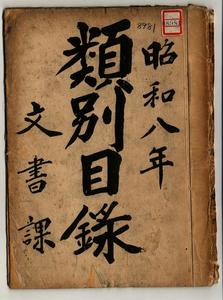 昭和八年
類別目錄
文書課
8981